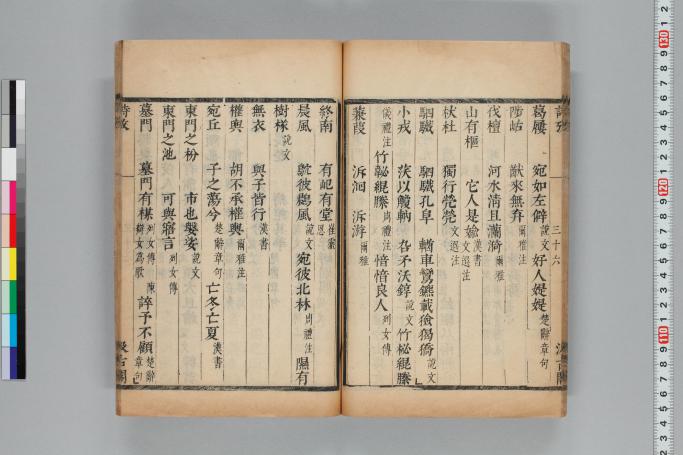 詩攷 三十六 汲古閣
葛屨 宛如左僻說文 好人媞媞楚辭章句
陟岵 猷來無弃爾雅注
伐檀 河水清且瀾漪爾雅
山有樞 它人是媮漢書文選注
杕杜 獨行煢煢文選注
駟驖 四驖孔阜 輶車鸞鑣載獫猲獢說文
小戎 茨以觼軜 厹矛沃錞說文 竹柲緄縢
儀禮注 竹䪐緄縢周禮注 愔愔良人列女傳
蒹葭 泝洄 泝游爾雅
終南 有屺有堂崔靈恩
晨風 鴥彼鷐風說文 宛彼北林周禮注 隰有
樹檖說文
無衣 與子皆行漢書
權輿 胡不承權輿爾雅注
宛丘 子之蕩兮楚辭章句 亡冬亡夏漢書
東門之枌 市也媻娑說文
東門之池 可與寤言列女傳
墓門 墓門有楳列女傳陳辯女為歌 誶予不顧楚辭章句
詩攷 汲古閣